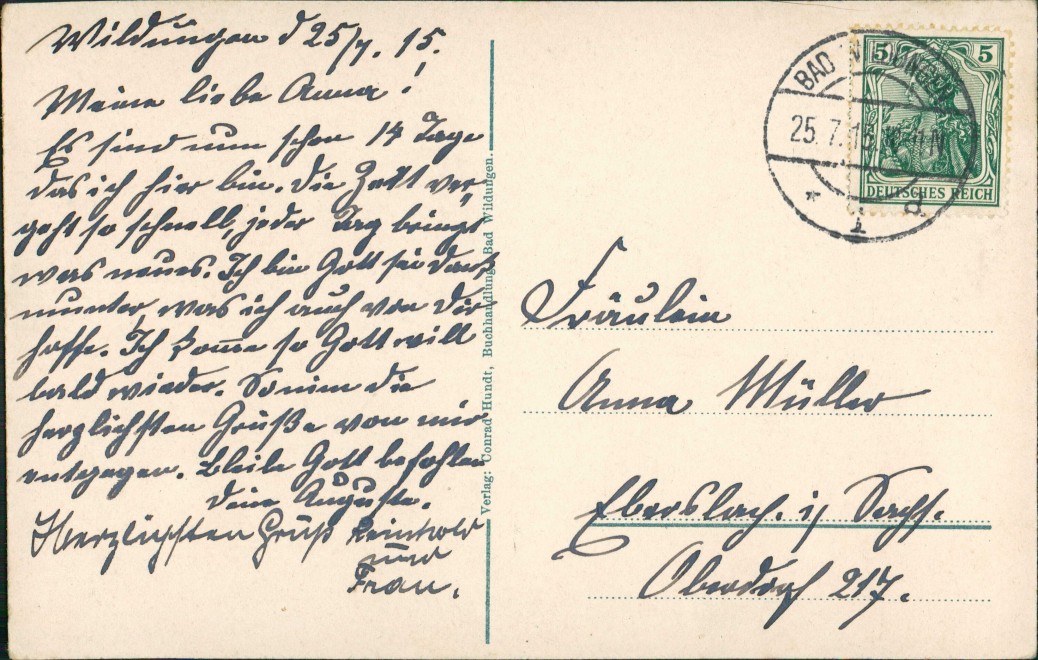 Wildungen d 25/7. 15.
Meine liebe Anna!
Es sind nun schon 14 Tage
das ich hier bin. Die Zeit ver,
geht so schnell, jeder Tag bringt
was neues. Ich bin Gott sei dank
munter, was ich auch von Dir
hoffe. Ich kom̅e so Gott will
bald wieder. So nim die
herzlichsten Grüße von mir
entgegen. Bleibe Gott befohlen
Deine Auguste.
Herzlichsten Gruß Reinhold
und
Frau.
Verlag: Conrad Hundt, Buchhandlung, Bad Wildungen.
BAD WILDUNGEN
25. 7. 15
* d
5 5
DEUTSCHES REICH
Fräulein
Anna Müller
Ebersbach. i/ Sachs.
Oberdorf 217.